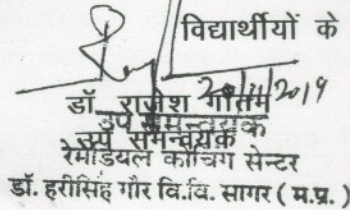 विद्यार्थीयों के
20/11/2019
डॉ. राजेश गौतम
उप समन्वयक
उप समन्वयक
रेमेडियल कोचिंग सेन्टर
डॉ. हरीसिंह गौर वि.वि. सागर ( म.प्र. )